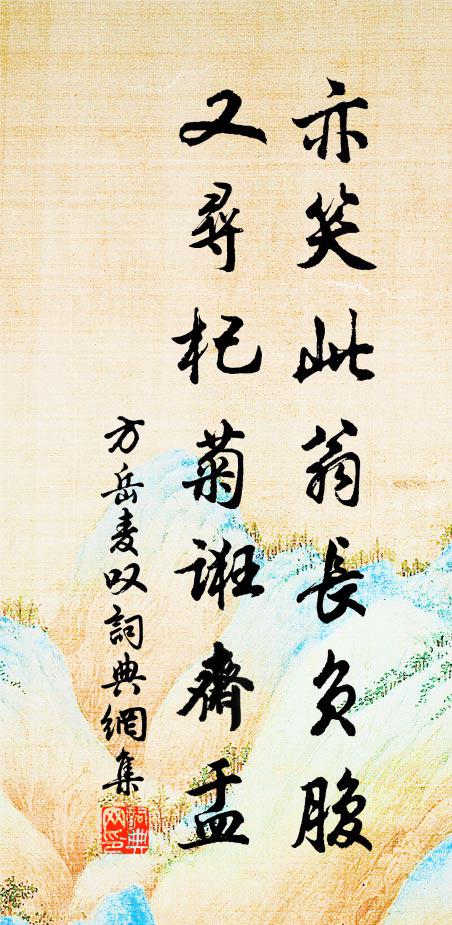 亦笑此翁長負腹
又尋杞菊誑齋盂
方岳麦叹詞典網集
詞典
网印